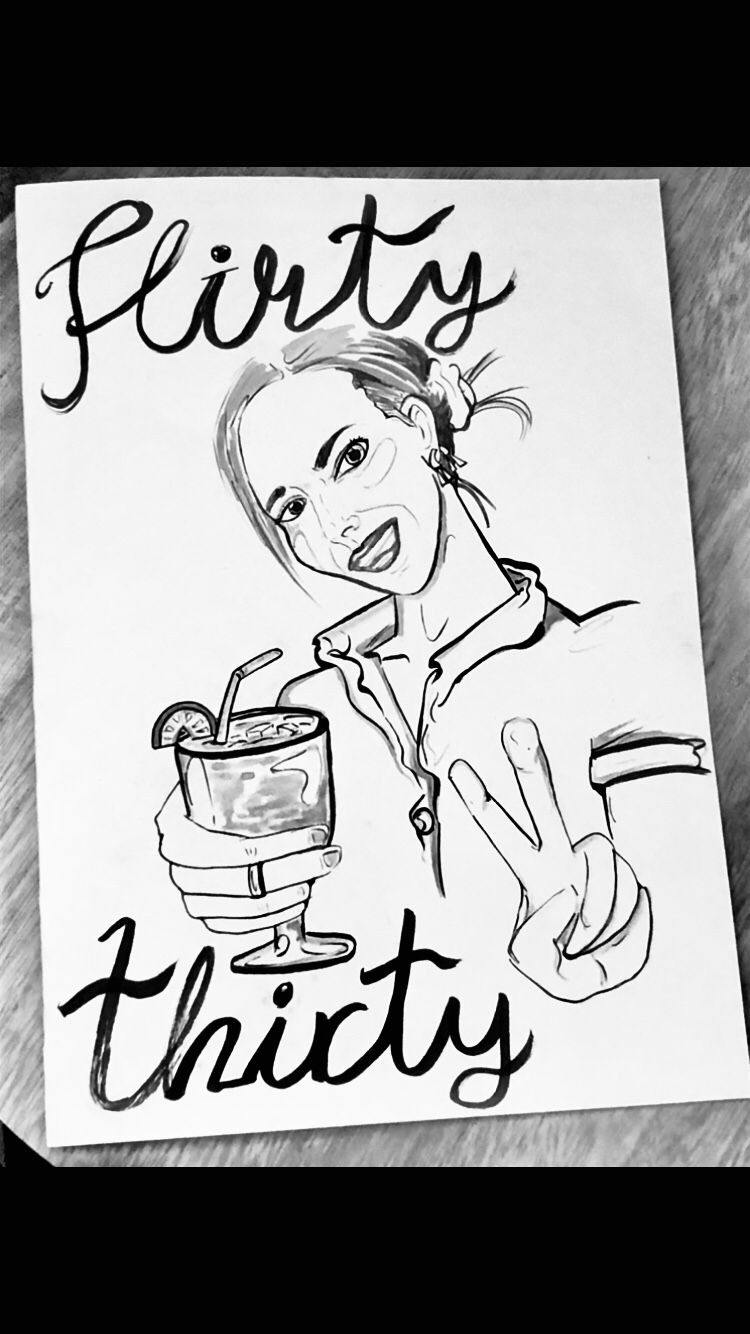 Flirty
thirty